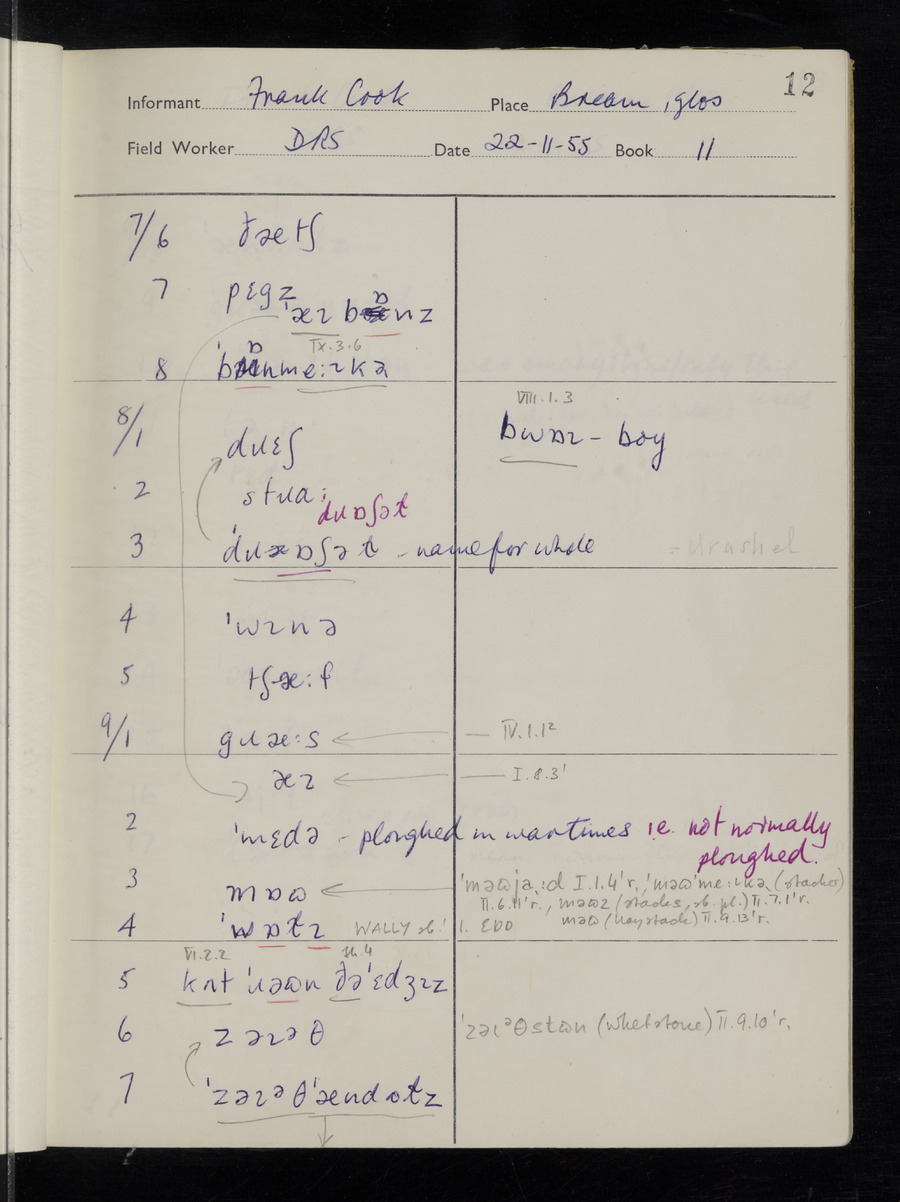 12
Informant Frank Cook Place Bream, Glos
Field Worker DRS Date 22-11-55 Book 11
7/6 ðæetʃ
7 pɛgz
ˈæɪ bɒnz
IX.3.6
8 ˈbɒnmeːɹkə
8/1 dɹɛʃ
VIII.1.3
bwɒɪ – boy
2 stɹaː
dɹɒʃət
3 ˈdɹɒʃət – name for whole = drashel
4 ˈwɪnə
5 tʃæːf
9/1 gɹæːs ← — IV.1.1²
æɪ ← — I.8.3'
2 ˈmɛdə – ploughed in wartimes i.e. not normally
ploughed.
3 mɒʊ ← ˈməʊjaːd I.1.4'r., ˈməʊˈmeːɹkə (stacker)
II.6.11'r., məʊz (stacks, sb. pl.) II.7.1'r.
4 ˈwɒɫɪ WALLY sb.' 1. EDD məʊ (haystack) II.9.13'r.
VI.2.2
5 kʌt ˈɹəʊn ðəˈɛdʒɪz
6 zəɪᵊθ ˈzəɪᵊθstʊn (whetstone) II.9.10'r.
7 ˈzəɪᵊθˈændɫz